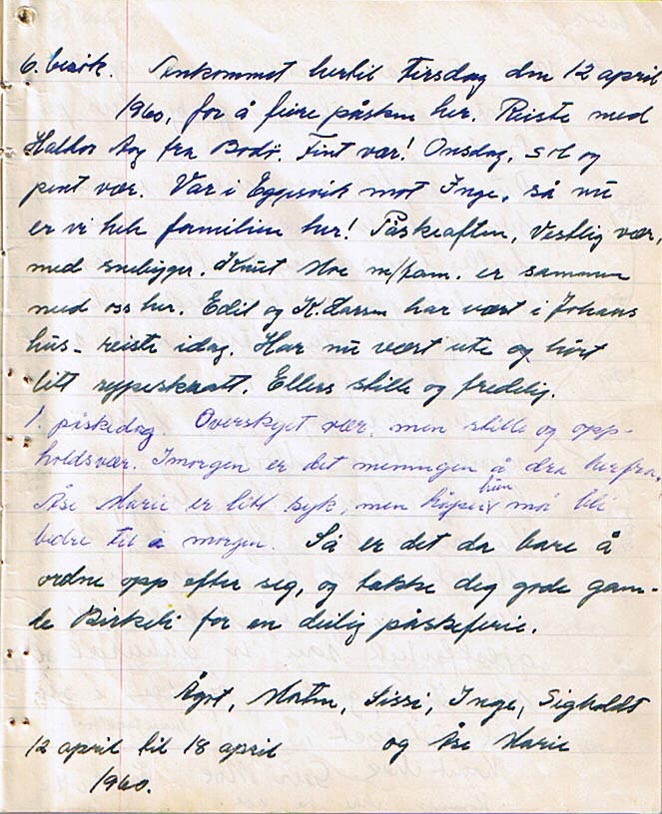 6. besøk. Ankommet hertil Tirsdag den 12 april
1960, for å feire påsken her. Reiste med
fra Bodø. Fint vær! Onsdag, sol og
pent vær. Var i Eggesvik mot Inge, så nu
er vi hele familien her! Påskeaften, Vestlig vær,
med snebygger. Knut Moe m/fam. er sammen
med oss her. Edil og K. Larsen har vært i Johans
hus - reiste idag. Har nu vært ute og hørt
litt rypeskratt. Ellers stille og fredelig.
1. påskedag. Overskyet vær, men stille og opp-
holdsvær. Imorgen er det meningen å dra herfra,
Åse Marie er litt syk, men håper hun må bli
bedre til i morgen. Så er det da bare å
ordne opp efter seg, og takke deg gode gam-
le Birkeli for en deilig påskeferie.
Ågot, Sissi, Inge, Sigholdt
12 april til 18 april og Åse Marie
1960.